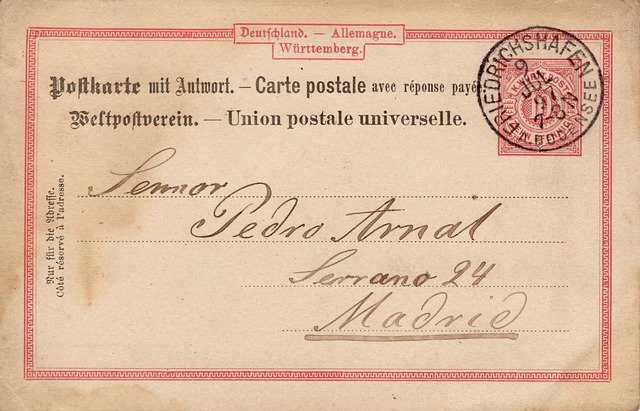 Deutschland. — Allemagne.
Württemberg.
Postkarte mit Antwort. — Carte postale avec réponse payée
Weltpostverein. — Union postale universelle.
FRIEDRICHSHAFEN
9
JUL
91
A. BODENSEE
Nur für die Adresse.
Côté réservé à l'adresse.
Sennor
Pedro Arnál
Serrano 24
Madrid